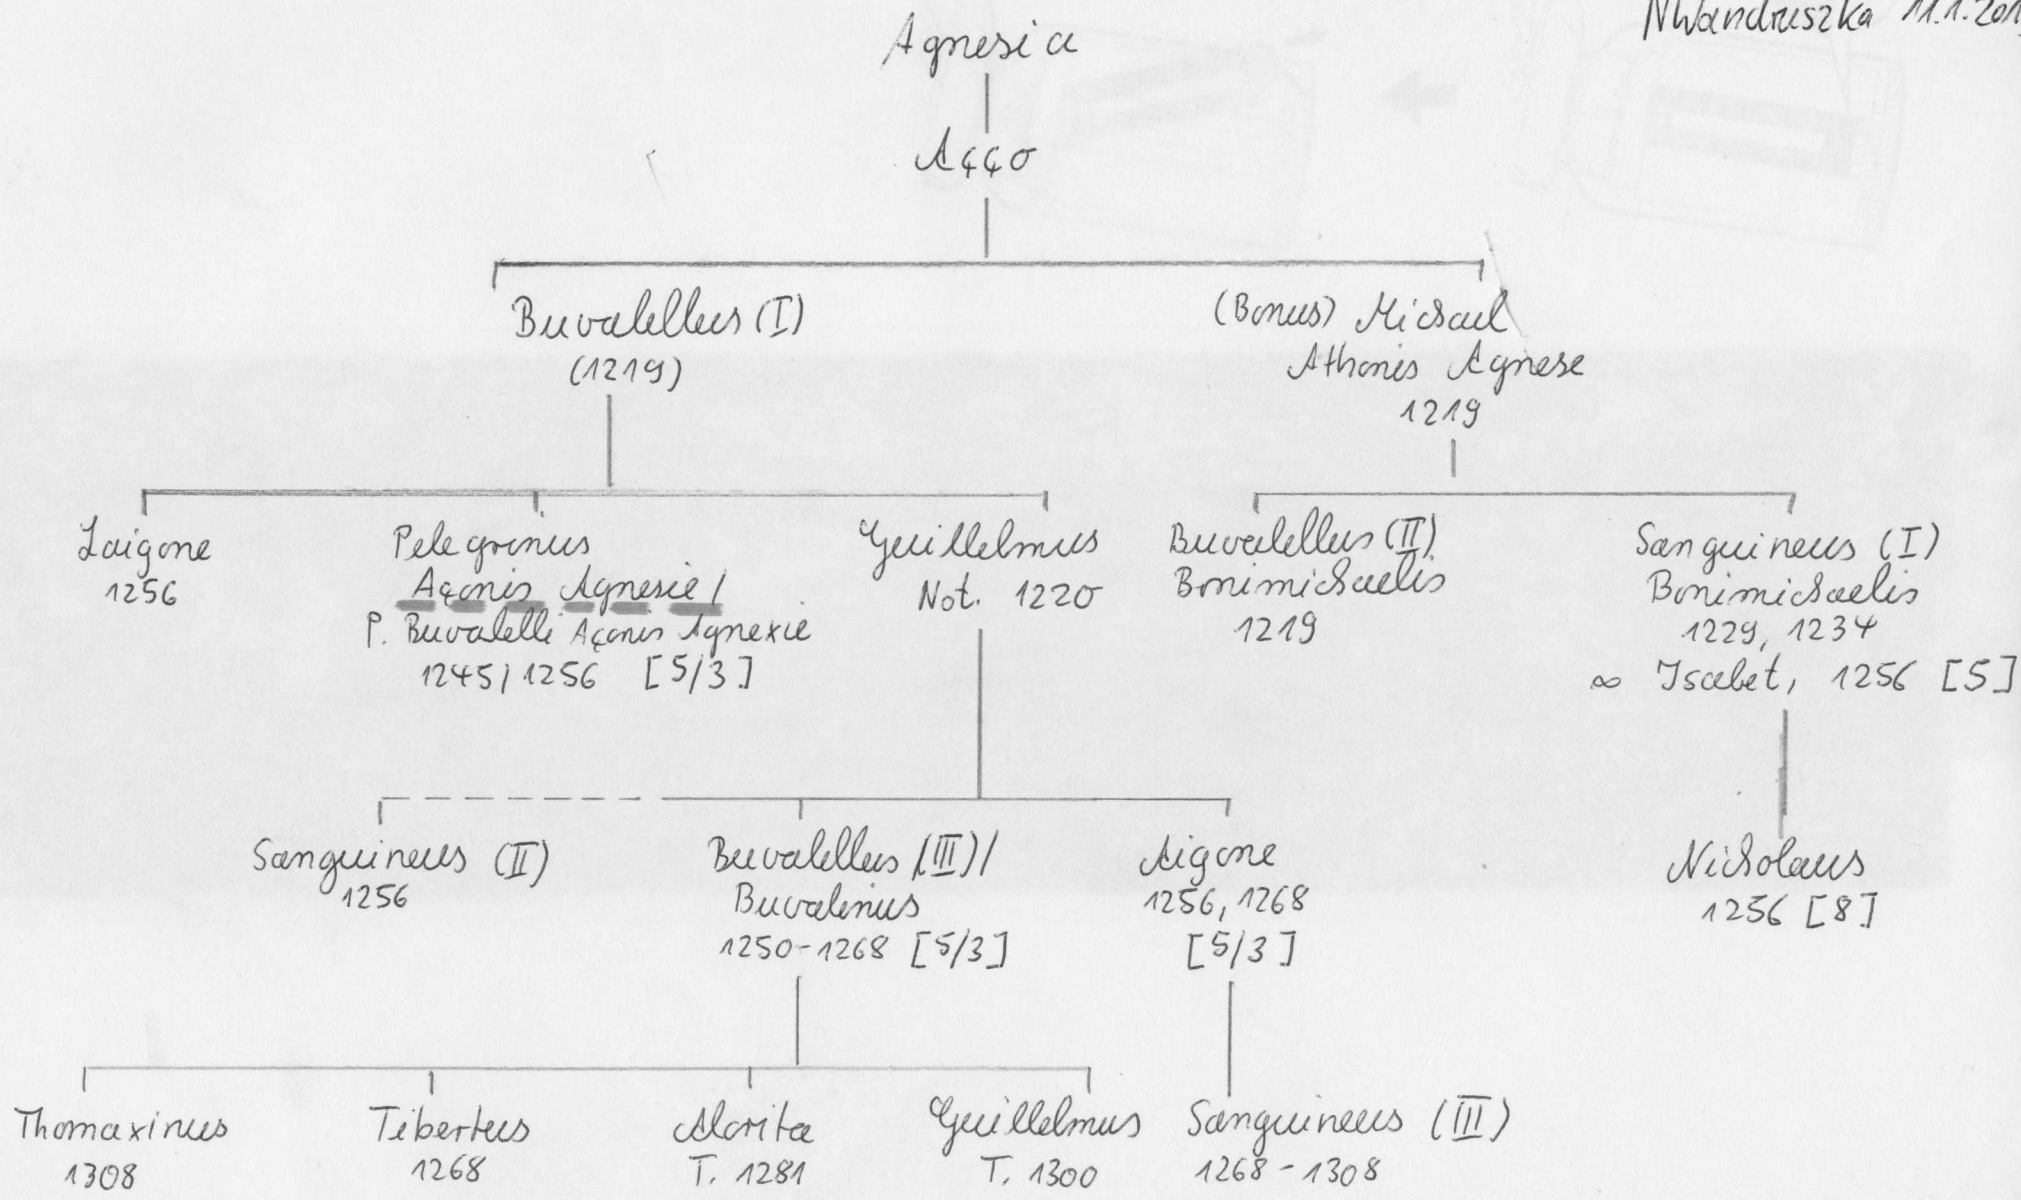 NWandruszka 11.1.201
Agnesia
Aççο
Buvalellus (I)
(1219)
(Bonus) Michael
Athonis Agnese
1219
Laigone
1256
Pelegrinus
Açonis Agnesie /
P. Buvalelli Açonis Agnexie
1245 / 1256 [5/3]
Guillelmus
Not. 1220
Buvalellus (II)
Bonimichaelis
1219
Sanguineus (I)
Bonimichaelis
1229, 1234
∞ Isabet, 1256 [5]
Sanguineus (II)
1256
Buvalellus (III) /
Buvalinus
1250-1268 [5/3]
Aigone
1256, 1268
[5/3]
Nicholaus
1256 [8]
Thomaxinus
1308
Tibertus
1268
Alorita
T. 1281
Guillelmus
T. 1300
Sanguineus (III)
1268-1308